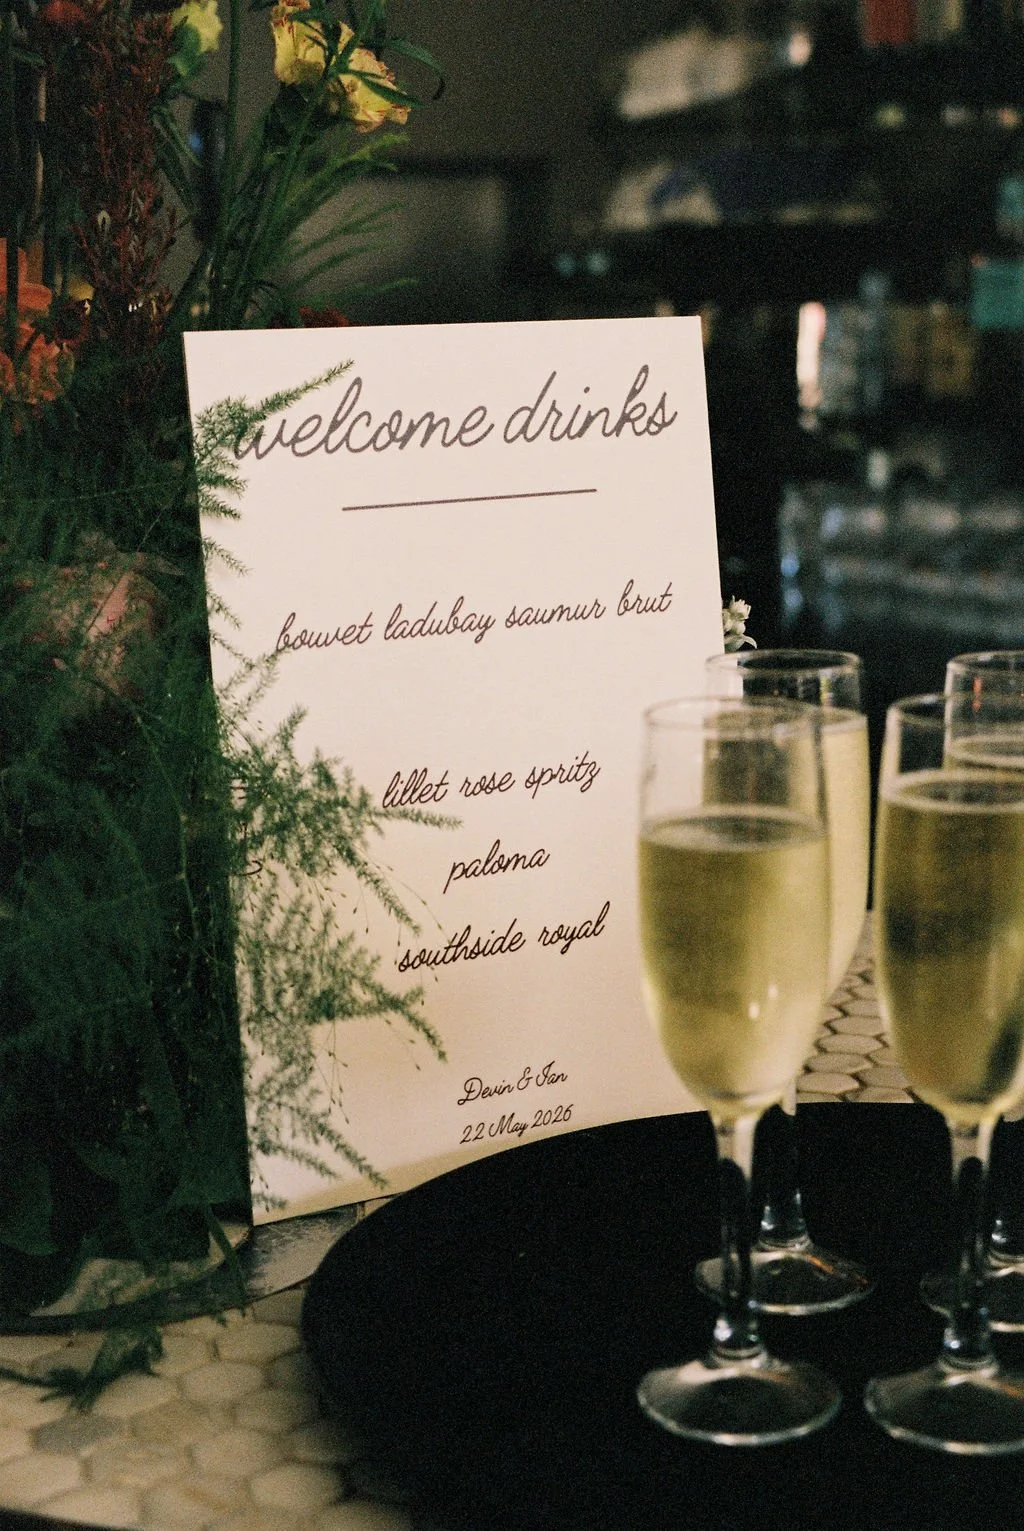 welcome drinks
bouvet ladubay saumur brut
lillet rose spritz
paloma
southside royal
Devin & Ian
22 May 2026